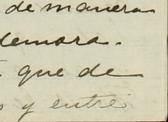 de manera
demora.
que de
y entre